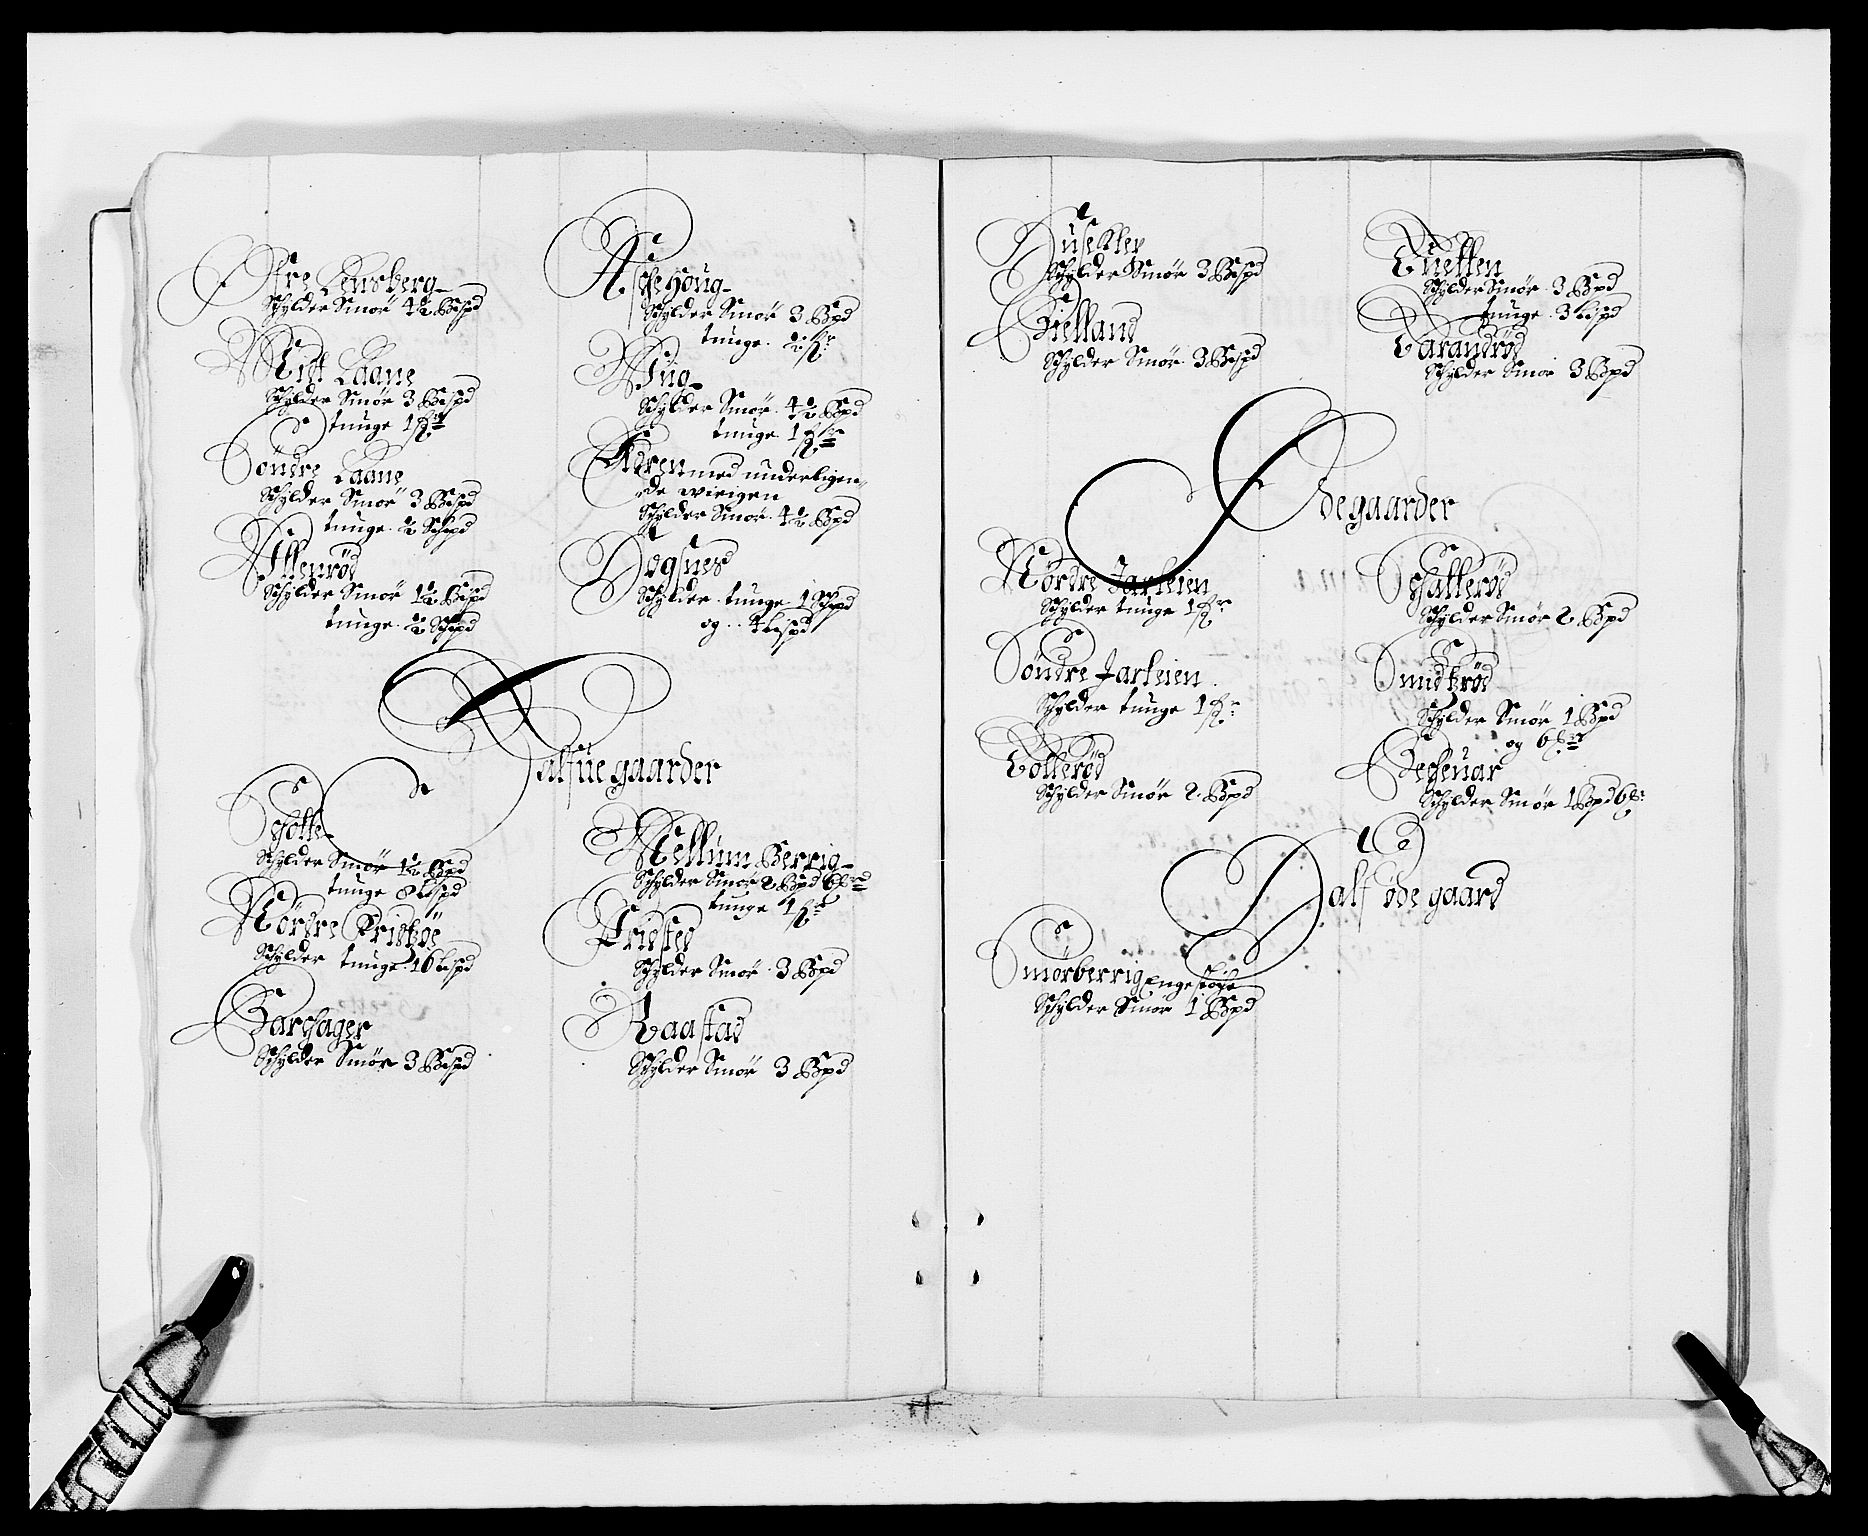 Øfre Lensberg
Schylder Smör 4½ Bispd
Mist Laane
Schylder Smör 3 Bispd
tunge 1 Hr
Söndre Laane
Schylder Smör 3 Bispd
tunge ½ Schpd
Illenröd
Schylder Smör 1½ Bispd
tunge ½ Schpd
Aschehoug
Schylder Smör 3 Bpd
tunge ½ Hr
Aug
Schylder Smör 4½ Bpd
tunge 1 Hr
Adren med underligen„
„de wirigen
Schylder Smör 4½ Bpd
Dogsnes
Schylder tunge 1 Schpd
og 4 Lispd
Halfue gaarder
Schotte
Schylder Smör 1½ Bpd
tunge 8 Lispd
Nördre Kristzöe
Schylder tunge 16 Lispd
Barchager
Schylder Smör 3 Bispd
Mellum Berrig
Schylder Smör 2 Bpd 6 Hr
tunge 1 Hr
Fristed
Schylder Smör 3 Bpd
Raastad
Schylder Smör 3 Bpd
Huseklep
Schylder Smör 3 Bispd
Gielland
Schylder Smör 3 Bispd
Tuetten
Schylder Smör 3 Bpd
tunge 3 Lispd
Tarandröd
Schylder Smör 3 Bpd
Ödegaarder
Nördre Jarteien
Schylder tunge 1 Hr
Söndre Jarteien
Schylder tunge 1 Hr
Tolleröd
Schylder Smör 2 Bpd
Schalleröd
Schylder Smör 2 Bpd
Smidtzröd
Schylder Smör 1 Bpd
og 6 Hr
Becheuar
Schylder Smör 1 Bpd 6 Hr
Half öde gaard
Smörberrig Engestöche
Schylder Smör 1 Bpd